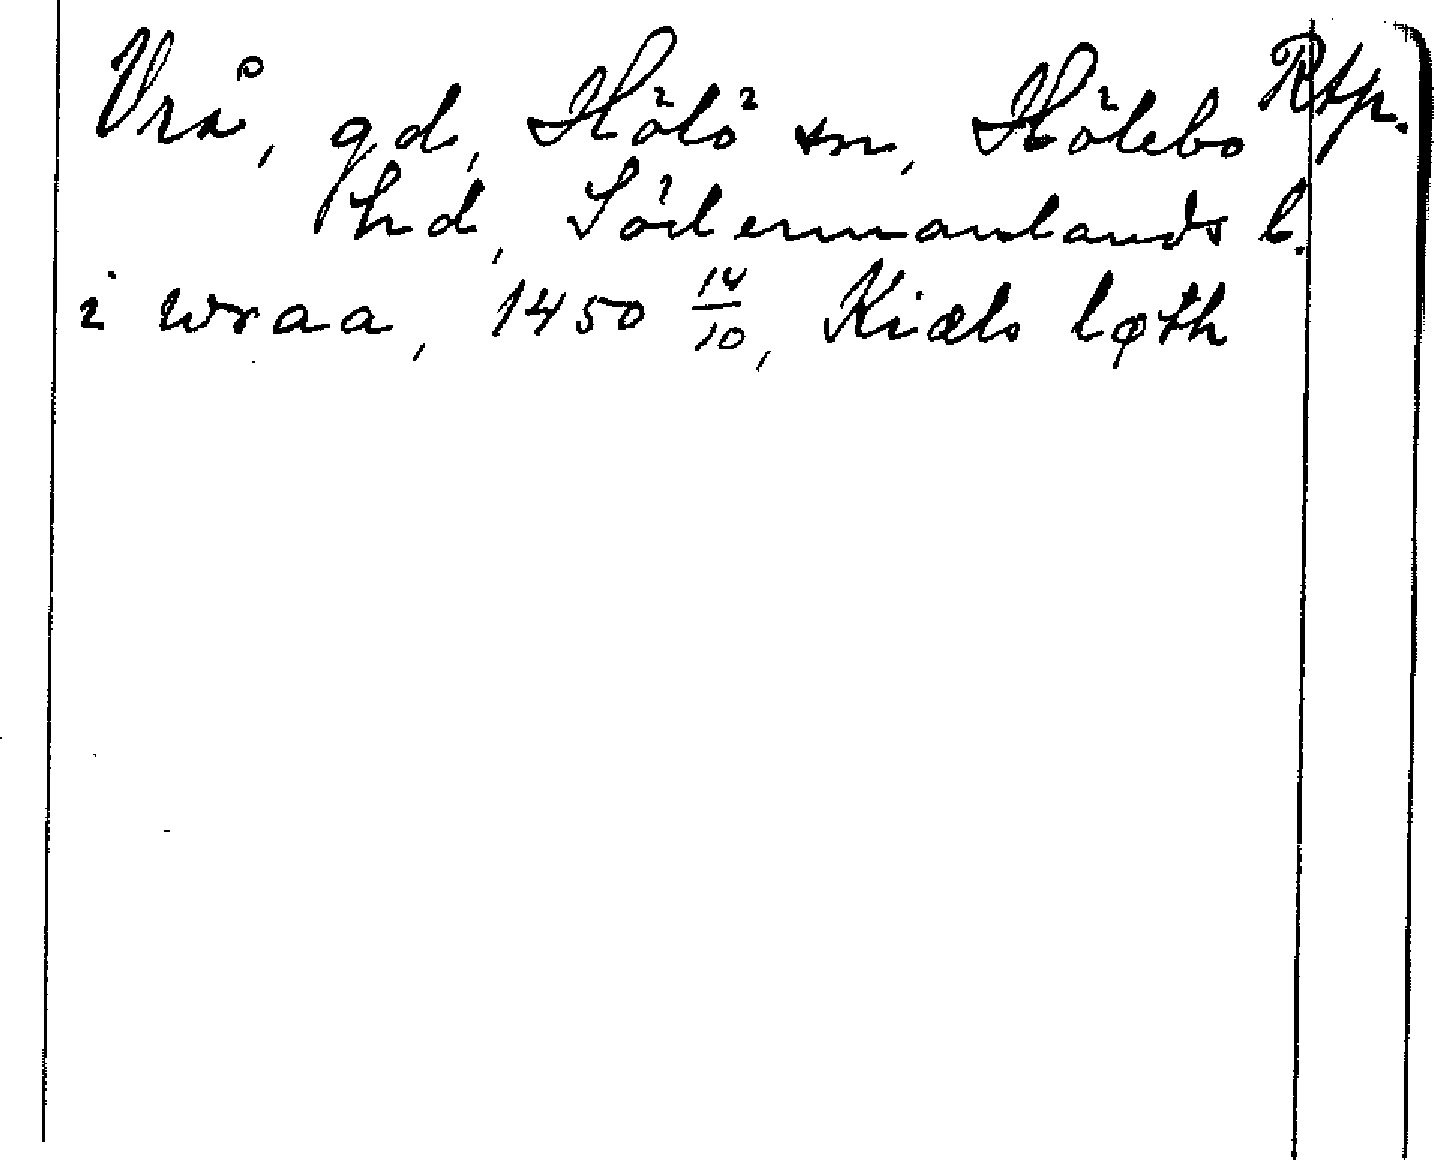 Vrå, gd, Hölö sn, Hölebo Rtp.
hd, Södermanlands l.
i wraa, 1450 14/10, Kiæls løth